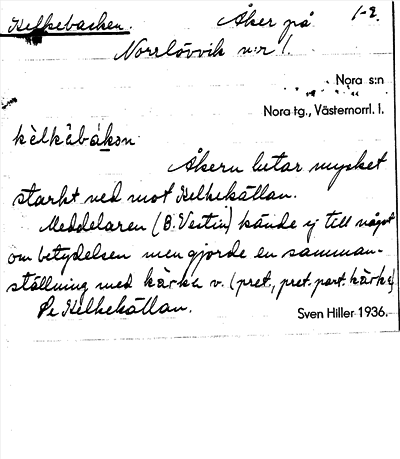 Kelkebacken. Åker på 1-2.
Norrlövvik n:r 1.
Nora s:n
Nora tg., Västernorrl. l.
kèlkàbákən
Åkern lutar mycket
starkt ned mot Kelkekällan.
Meddelaren (B. Vestin) kände ej till något
om betydelsen men gjorde en samman-
ställning med kärka v. (pret., pret. part. kärka)
Se Kelkekällan.
Sven Hiller 1936.